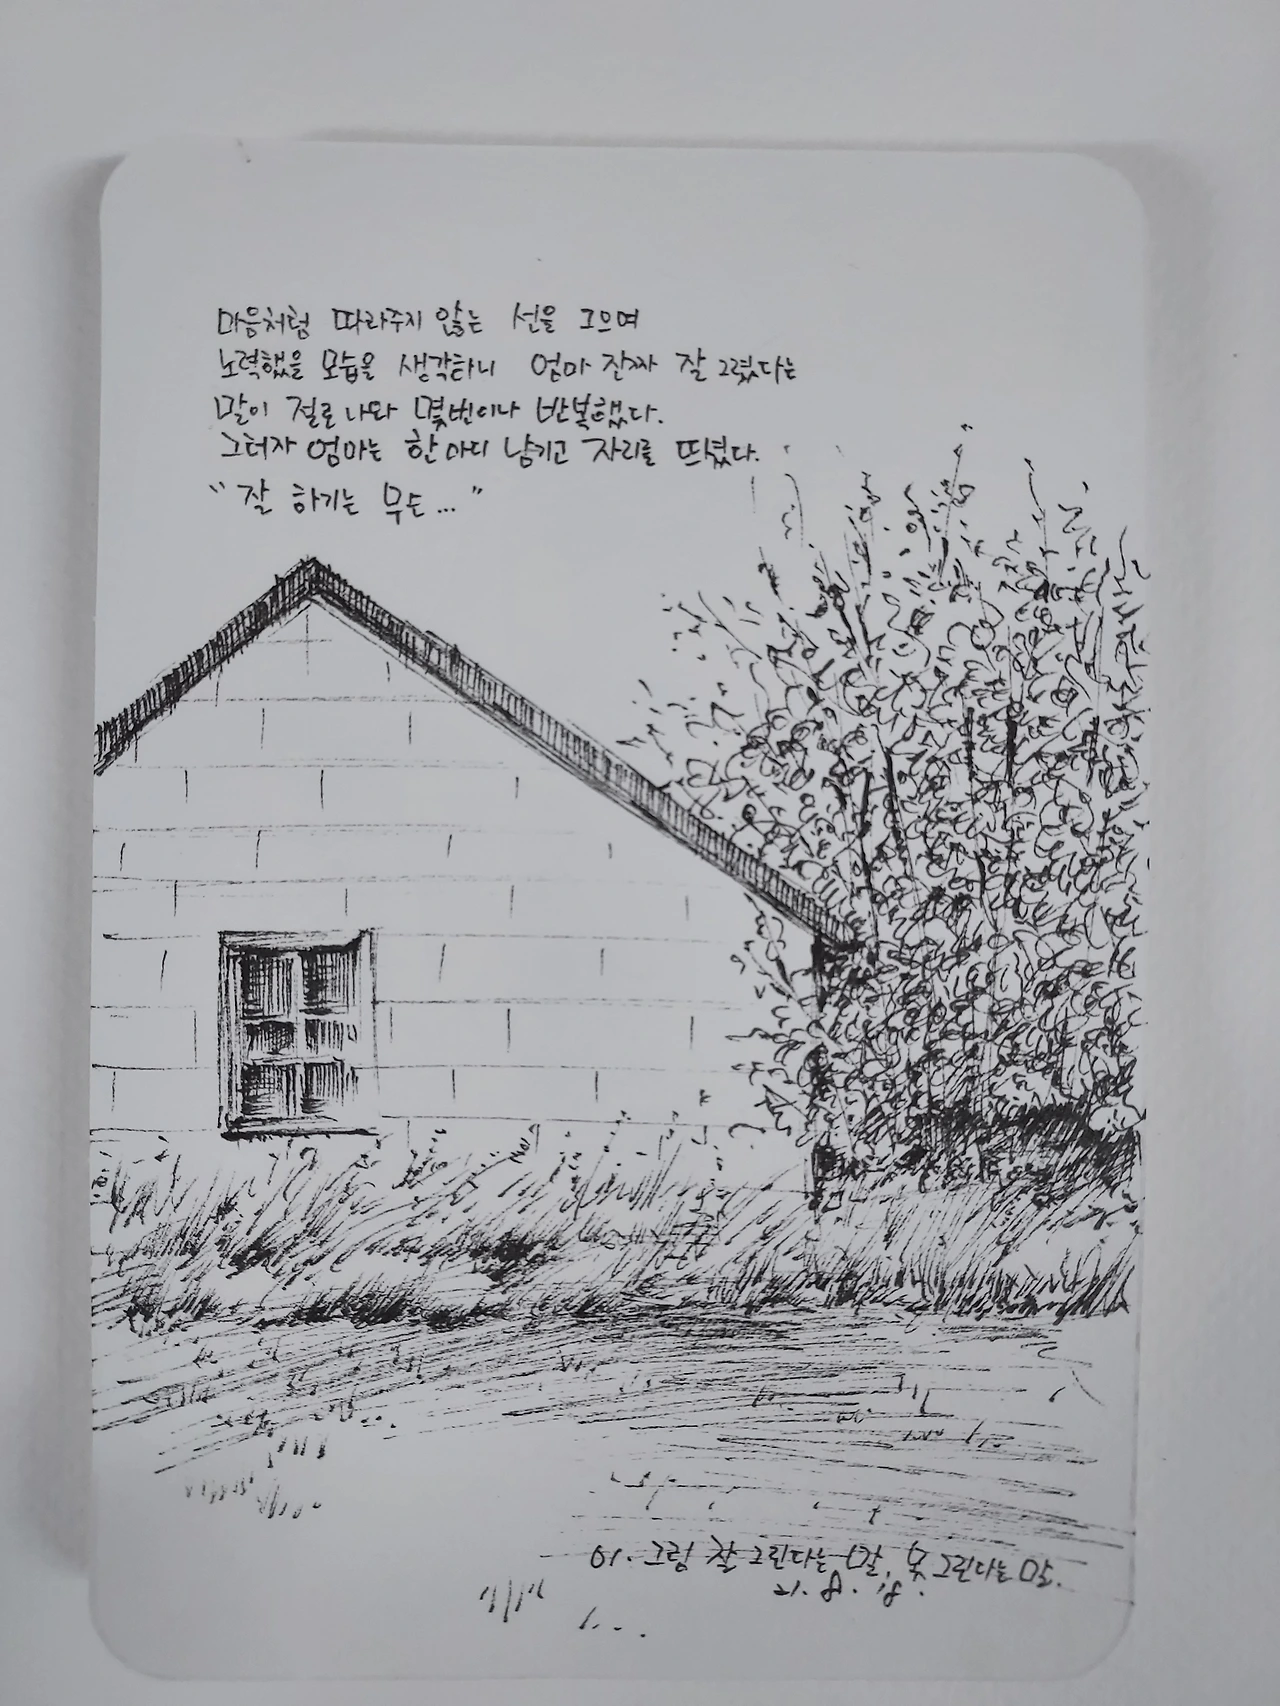 마음처럼 따라주지 않는 선을 그으며
노력했을 모습을 생각하니 엄마 진짜 잘 그렸다는
말이 절로 나와 몇번이나 반복했다.
그러자 엄마는 한마디 남기고 자리를 뜨셨다.
"잘 하기는 무슨..."
01. 그림 잘 그린다는 말, 못 그린다는 말.
21. 8. 18.